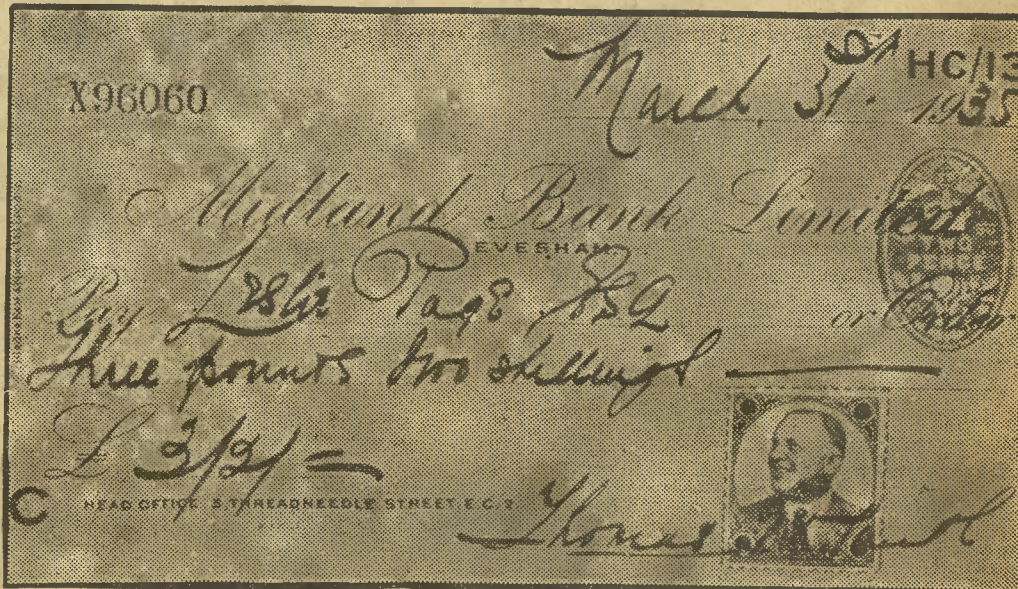 HC/13
X96060
March. 31st 1935
Midland Bank Limited
EVERSHAM
Pay Leslie Page ESQ or Order
Three pounds Two shillings
£ 3/2/=
C HEAD OFFICE 5, THREADNEEDLE STREET, E.C.2.
Thomas